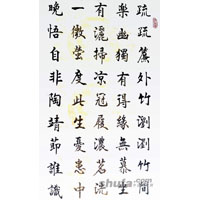 疏疏簾外竹瀏瀏竹間
樂幽獨有得緣無慕生
有灑掃凉冠履茗流
一微螢度此生憂患中
晚悟自非陶靖節誰識